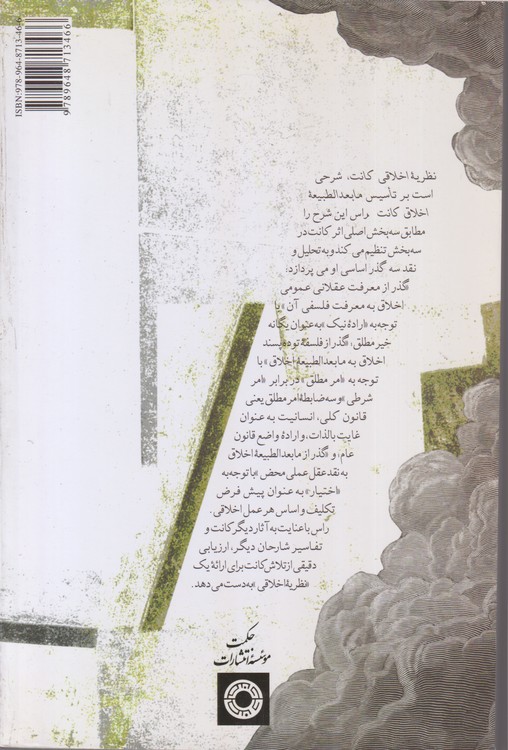 ISBN:978-964-8713-46-6
9789648713466
نظریهٔ اخلاقی کانت، شرحی
است بر تأسیس مابعدالطبیعهٔ
اخلاق کانت. راس این شرح را
مطابق سه‌بخش اصلی اثر کانت در
سه‌بخش تنظیم می‌کند و به تحلیل و
نقد سه گذر اساسی او می‌پردازد:
«گذر از معرفت عقلانی عمومی
اخلاق به معرفت فلسفی آن» با
توجه به «ارادهٔ نیک» به‌عنوان یگانه
خیر مطلق؛ «گذر از فلسفهٔ توده‌پسند
اخلاق به مابعدالطبیعهٔ اخلاق» با
توجه به «امر مطلق» در برابر «امر
شرطی» و سه ضابطهٔ امر مطلق یعنی
قانون کلی، انسانیت به عنوان
غایت بالذات، و ارادهٔ واضع قانون
عام؛ و «گذر از مابعدالطبیعهٔ اخلاق
به نقد عقل عملی محض» با توجه به
«اختیار» به عنوان پیش فرض
تکلیف و اساس هر عمل اخلاقی.
راس با عنایت به آثار دیگر کانت و
تفاسیر شارحان دیگر، ارزیابی
دقیقی از تلاش کانت برای ارائهٔ یک
«نظریهٔ اخلاقی» به دست می‌دهد.
حکمت
مؤسسهٔ انتشارات